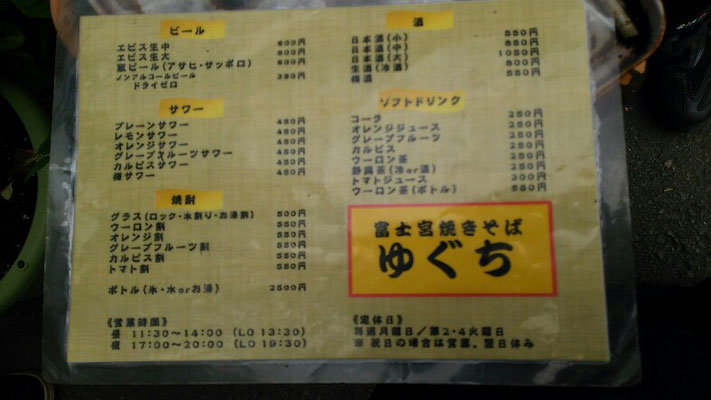 ビール
エビス生中 600円
エビス生大 800円
瓶ビール(アサヒ・サッポロ) 600円
ノンアルコールビール 350円
ドライゼロ
サワー
プレーンサワー 450円
レモンサワー 450円
オレンジサワー 450円
グレープフルーツサワー 450円
カルピスサワー 450円
梅サワー 450円
焼酎
グラス(ロック・水割り・お湯割) 500円
ウーロン割 550円
オレンジ割 550円
グレープフルーツ割 550円
カルピス割 550円
トマト割 550円
ボトル(氷・水orお湯) 2500円
《営業時間》
昼 11:30～14:00 (LO 13:30)
夜 17:00～20:00 (LO 19:30)
酒
日本酒(小) 550円
日本酒(中) 850円
日本酒(大) 1050円
生酒(冷酒) 800円
梅酒 550円
ソフトドリンク
コーラ 250円
オレンジジュース 250円
グレープフルーツ 250円
カルピス 250円
ウーロン茶 250円
静岡茶(冷or温) 250円
トマトジュース 300円
ウーロン茶(ボトル) 550円
富士宮焼きそば
ゆぐち
《定休日》
毎週月曜日／第2・4火曜日
※ 祝日の場合は営業、翌日休み